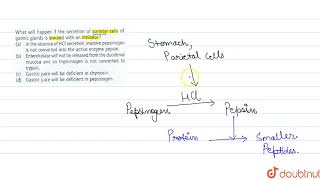 What will happen if the secretion of parietal cells of
gastric glands is blocked with an inhibitor?
(a) In the absence of HCl secretion, inactive pepsinogen
is not converted into the active enzyme pepsin.
(b) Enterokinase will not be released from the duodenal
mucosa and so trypsinogen is not converted to
trypsin.
(c) Gastric juice will be deficient in chymosin.
(d) Gastric juice will be deficient in pepsinogen.
Stomach,
Parietal Cells
HCl
Pepsinogen
Pepsin
Protein
Smaller
Peptides.
doubtnut